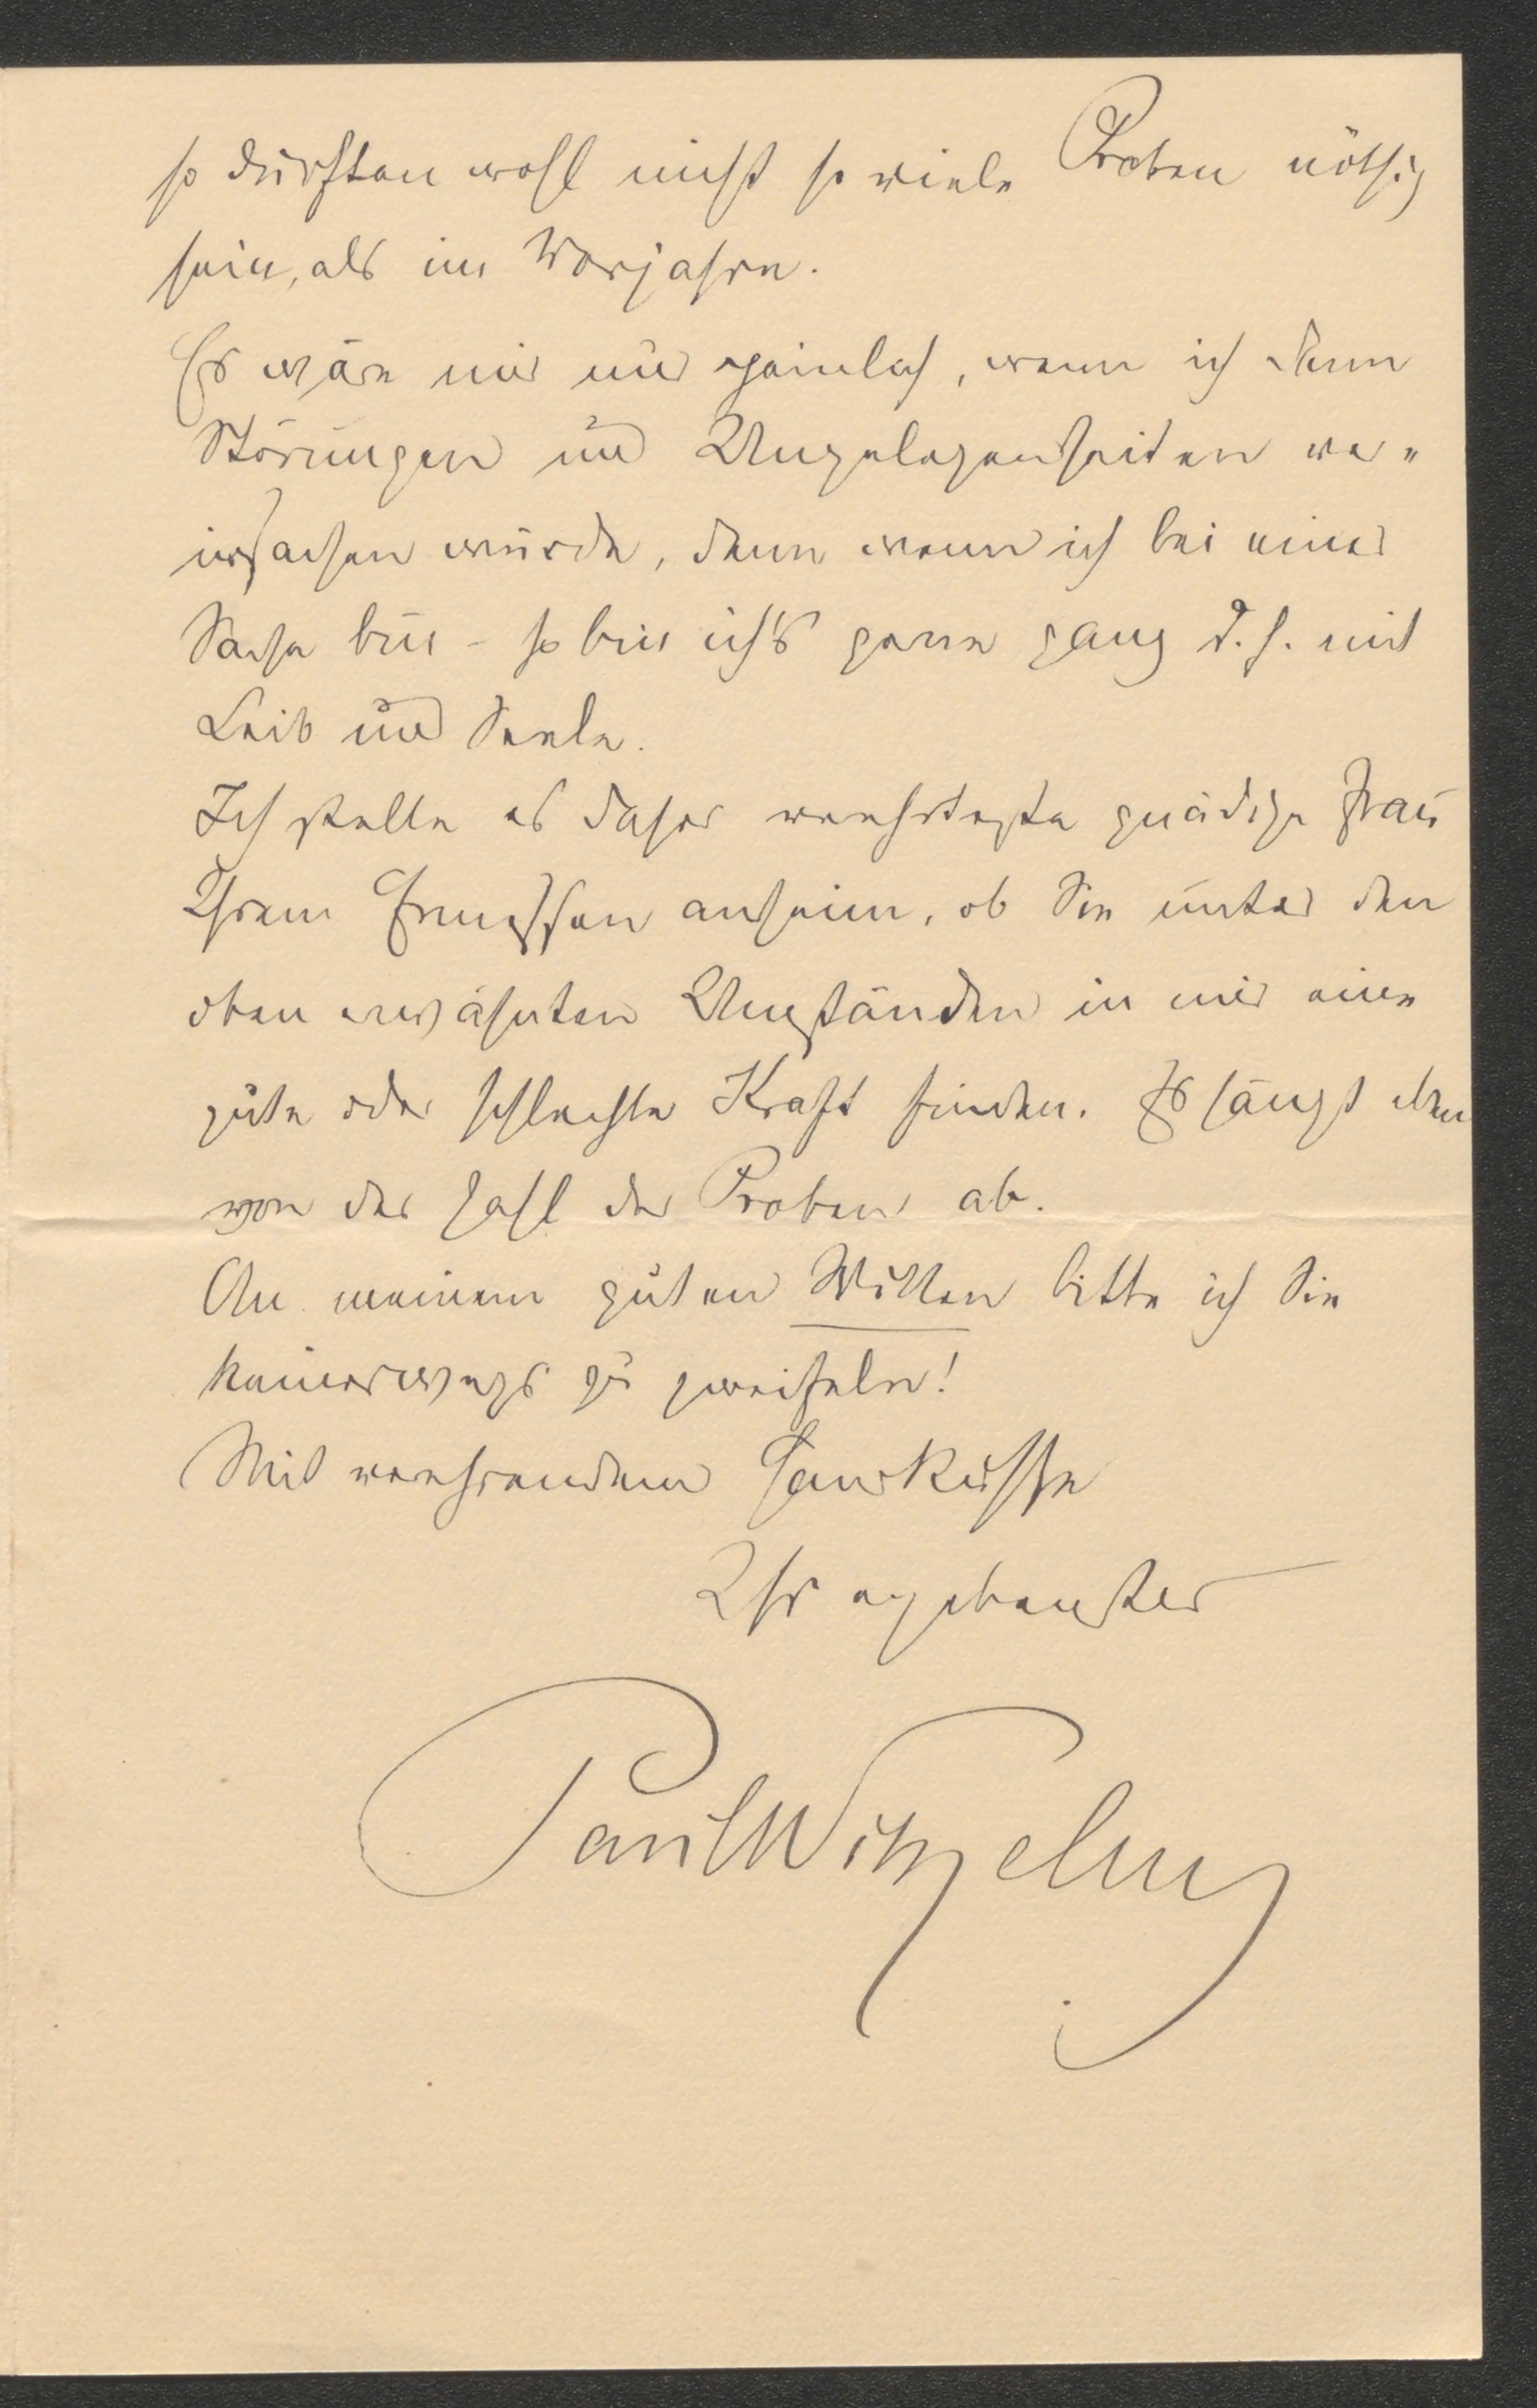 so dürften wohl nicht so viele Proben nöthig
sein, als im Vorjahre.
Es wäre mir nur peinlich, wenn ich dann
Störungen und Ungelegenheiten ver=
ursachen würde, denn wenn ich bei einer
Sache bin – so bin ich's gerne ganz d. h. mit
Leib und Seele.
Ich stelle es daher verehrteste gnädige Frau
Ihrem Ermessen anheim, ob Sie unter den
oben erwähnten Umständen in mir eine
gute oder schlechte Kraft finden. Es hängt eben
von der Zahl der Proben ab.
An meinem guten Willen bitte ich Sie
keinerwegs zu zweifeln!
Mit verehrendem Handkusse
Ihr ergebenster
Paul Wilhelm